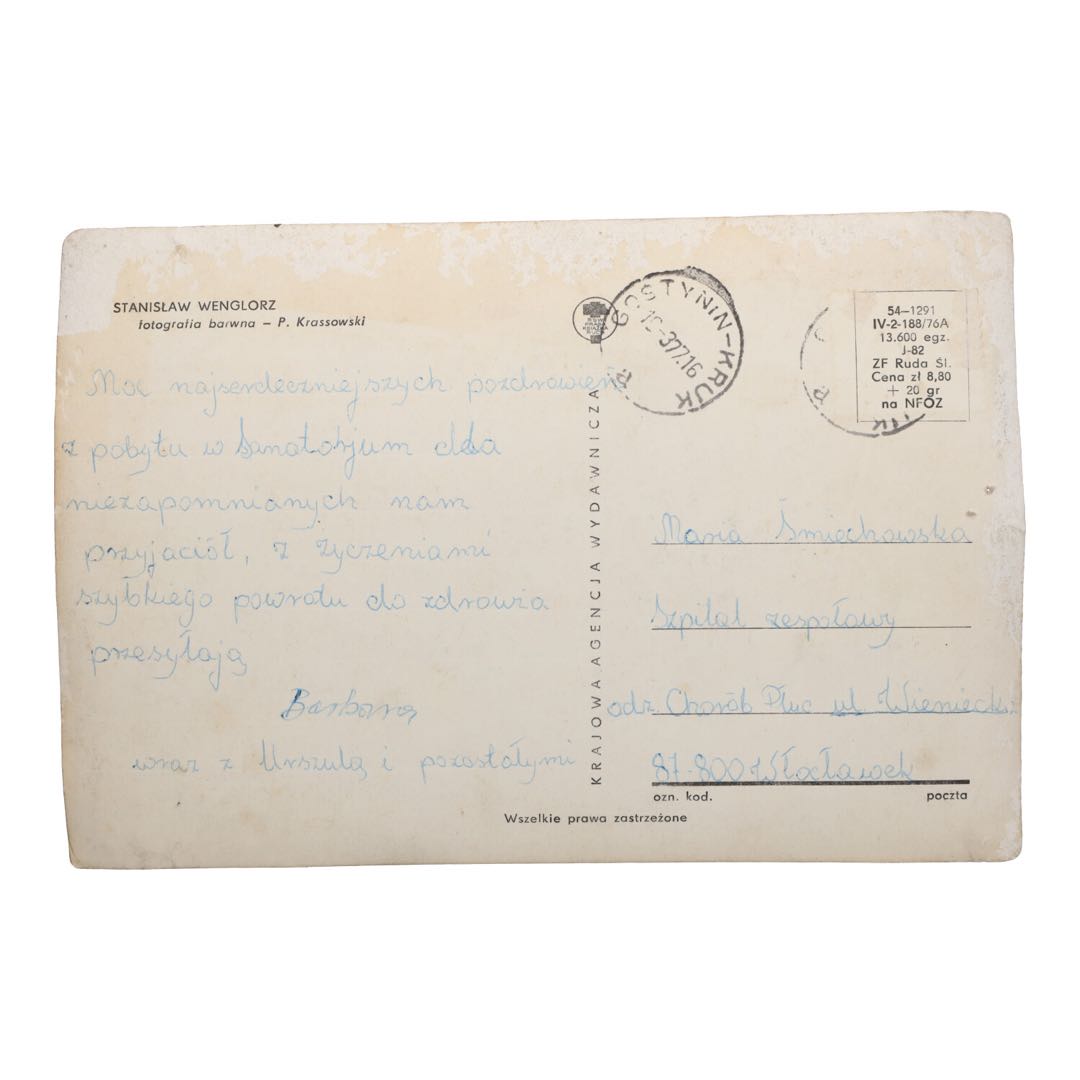 STANISŁAW WENGLORZ
fotografia barwna – P. Krassowski
Moc najserdeczniejszych pozdrowień
z pobytu w Sanatorjum dla
niezapomnianych nam
przyjaciół, z życzeniami
szybkiego powrotu do zdrowia
przesyłają
Barbara
wraz z Urszulą i pozostałymi
KRAJOWA AGENCJA WYDAWNICZA
GOSTYNIN-KRUK
54–1291
IV-2-188/76A
13.600 egz.
J-82
ZF Ruda Śl.
Cena zł 8,80
+ 20 gr
na NFOZ
Maria Śmiechowska
Szpital zespoławy
odz. Chorób Płuc ul. Wieniecka
87-800 Włocławek
ozn. kod. poczta
Wszelkie prawa zastrzeżone